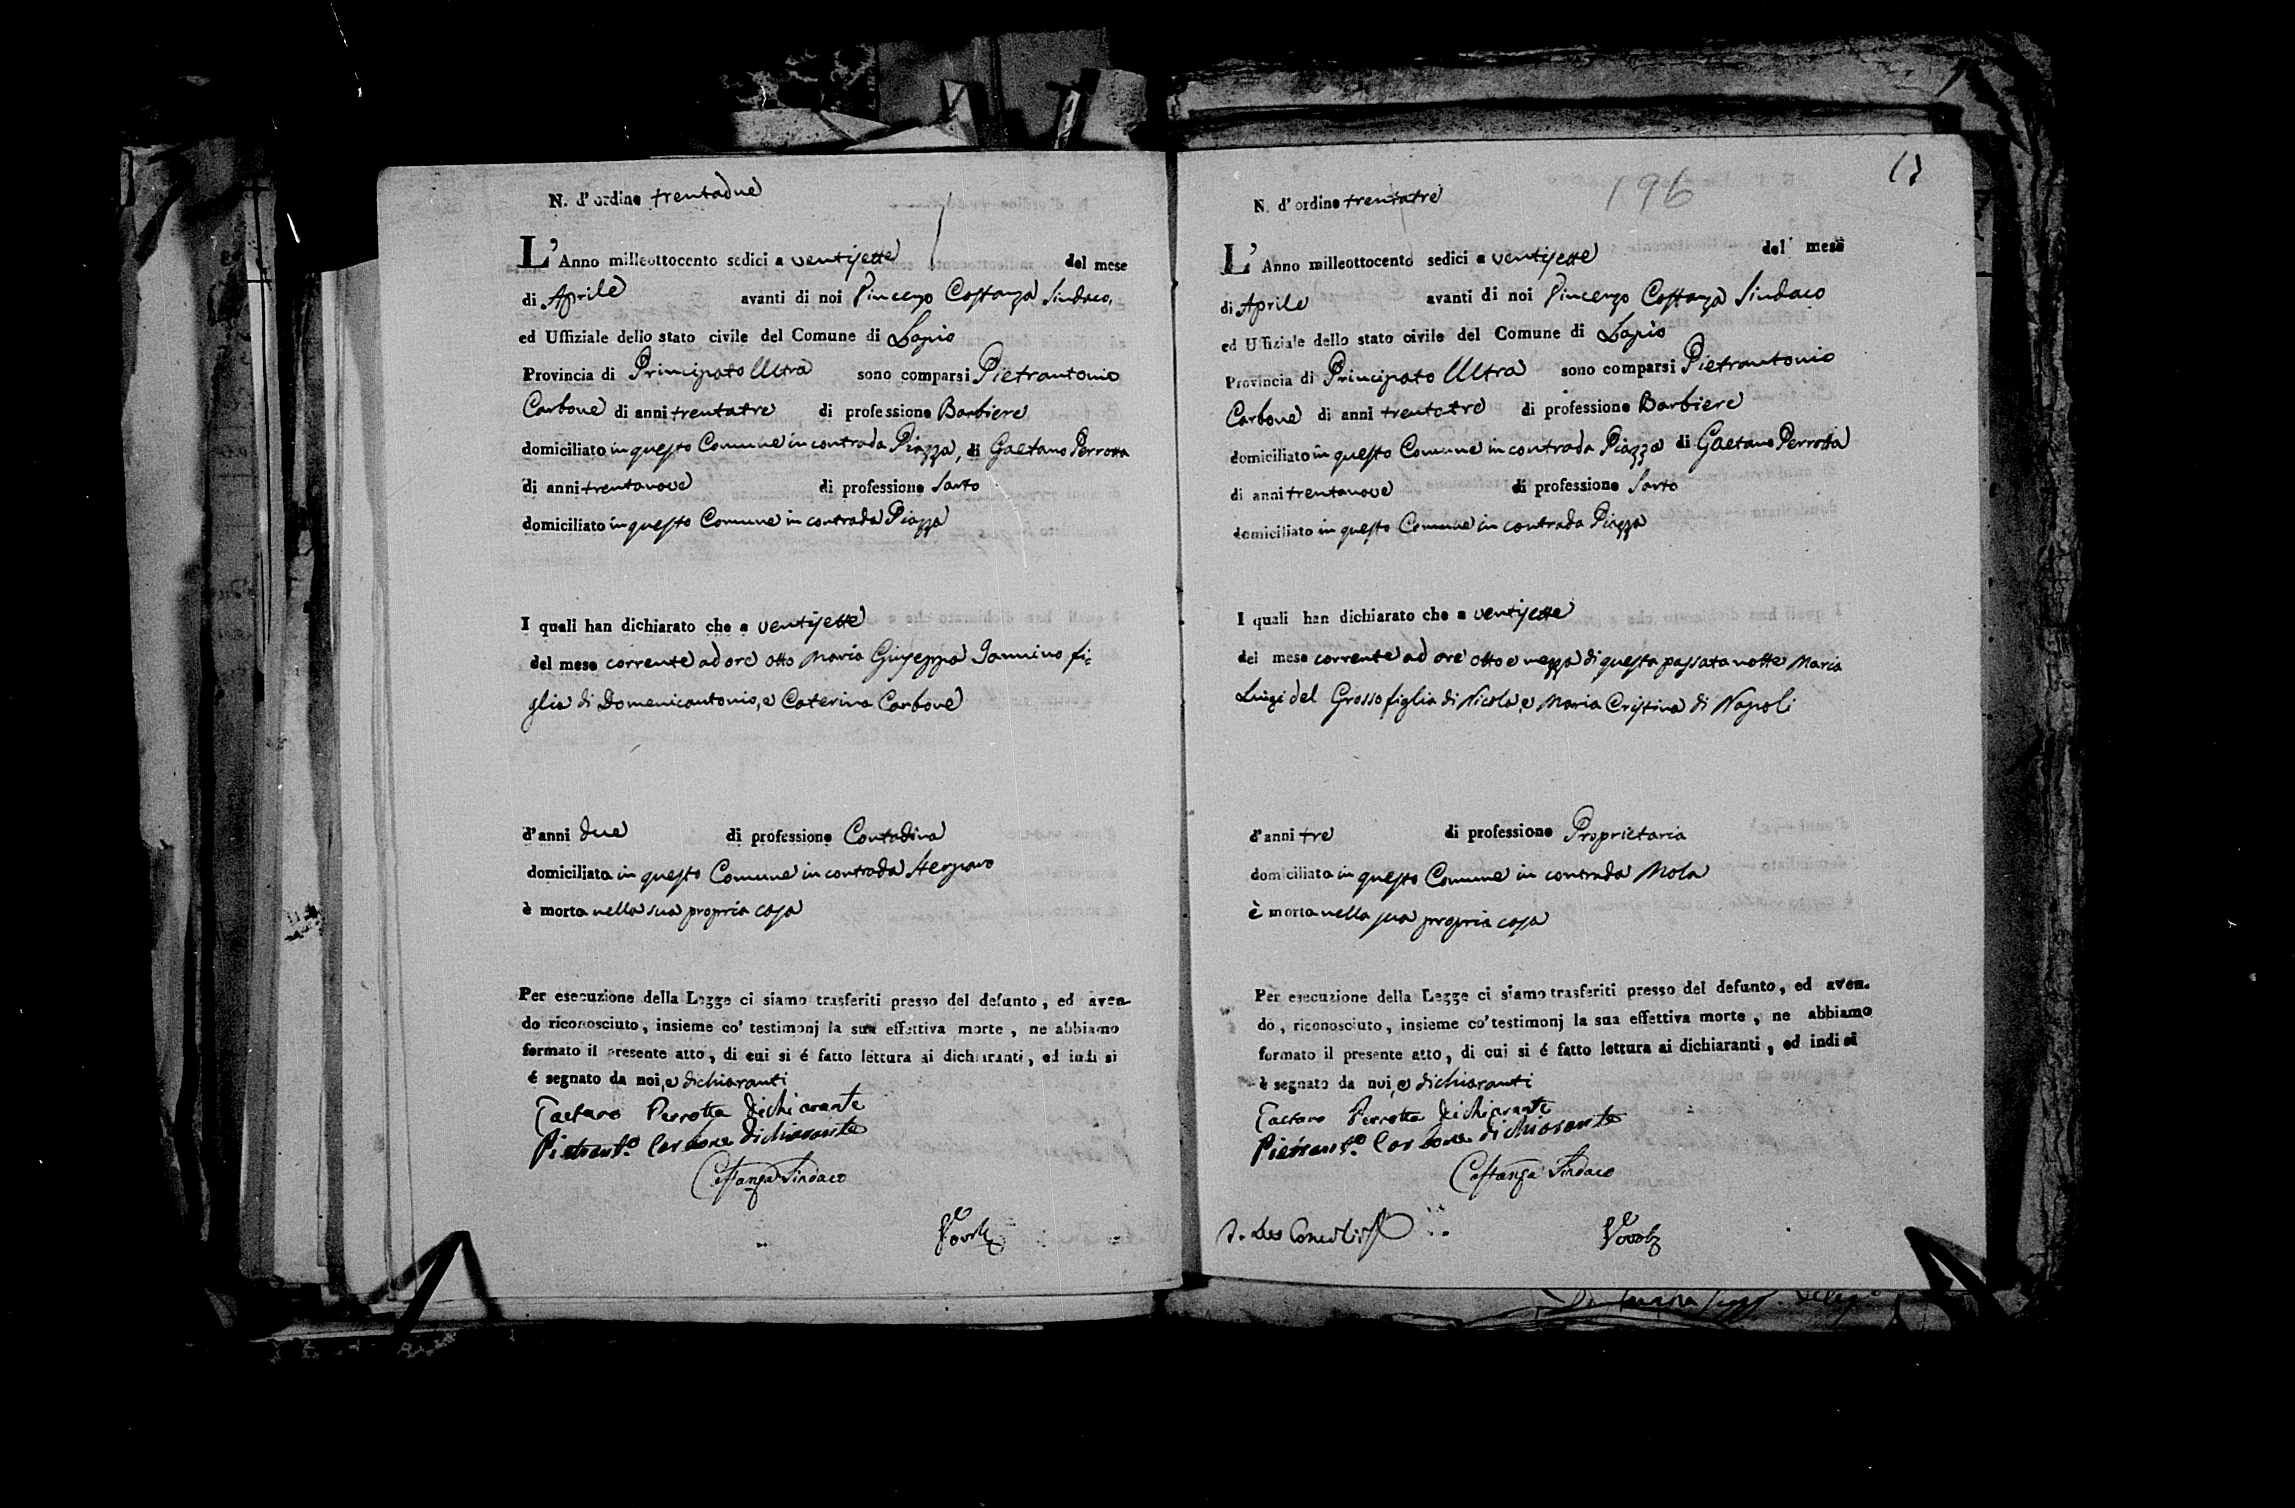 N. d' ordine trentadue
L' Anno milleottocento sedici a ventisette del mese
di Aprile avanti di noi Vincenzo Costanza Sindaco,
ed Uffiziale dello stato civile del Comune di Lapio
Provincia di Principato Ultra sono comparsi Pietrantonio
Carbone di anni trentatre di professione Barbiere
domiciliato in questo Comune in contrada Piazza, di Gaetano Perrotta
di anni trentanove di professione Sarto
domiciliato in questo Comune in contrada Piazza
I quali han dichiarato che a ventisette
del mese corrente ad ore otto Maria Giuseppa Iannino fi=
glia di Domenicantonio, e Caterina Carbone
d'anni due di professione Contadina
domiciliata in questo Comune in contrada
è morta nella sua propria casa
Per esecuzione della Legge ci siamo trasferiti presso del defunto, ed aven-
do riconosciuto, insieme co' testimonj la sua effettiva morte, ne abbiamo
formato il presente atto, di cui si é fatto lettura ai dichiaranti, ed indi si
é segnato da noi, e dichiaranti
Gaetano Perrotta dichiarante
Pietrant.o Carbone dichiarante
Costanza Sindaco
17
196
N. d' ordine trentatre
L' Anno milleottocento sedici a ventisette del mese
di Aprile avanti di noi Vincenzo Costanza Sindaco
ed Uffiziale dello stato civile del Comune di Lapio
Provincia di Principato Ultra sono comparsi Pietrantonio
Carbone di anni trentatre di professione Barbiere
domiciliato in questo Comune in contrada Piazza di Gaetano Perrotta
di anni trentanove di professione Sarto
domiciliato in questo Comune in contrada Piazza
I quali han dichiarato che a ventisette
del mese corrente ad ore otto e mezza di questa passata notte Maria
Luigi del Grosso figlia di Nicola, e Maria Cristina di Napoli
d'anni tre di professione Proprietaria
domiciliata in questo Comune in contrada Mola
è morta nella sua propria casa
Per esecuzione della Legge ci siamo trasferiti presso del defunto, ed aven-
do, riconosciuto, insieme co' testimonj la sua effettiva morte, ne abbiamo
formato il presente atto, di cui si é fatto lettura ai dichiaranti, ed indi si
è segnato da noi, e dichiaranti
Gaetano Perrotta dichiarante
Pietrant.o Carbone dichiarante
Costanza Sindaco